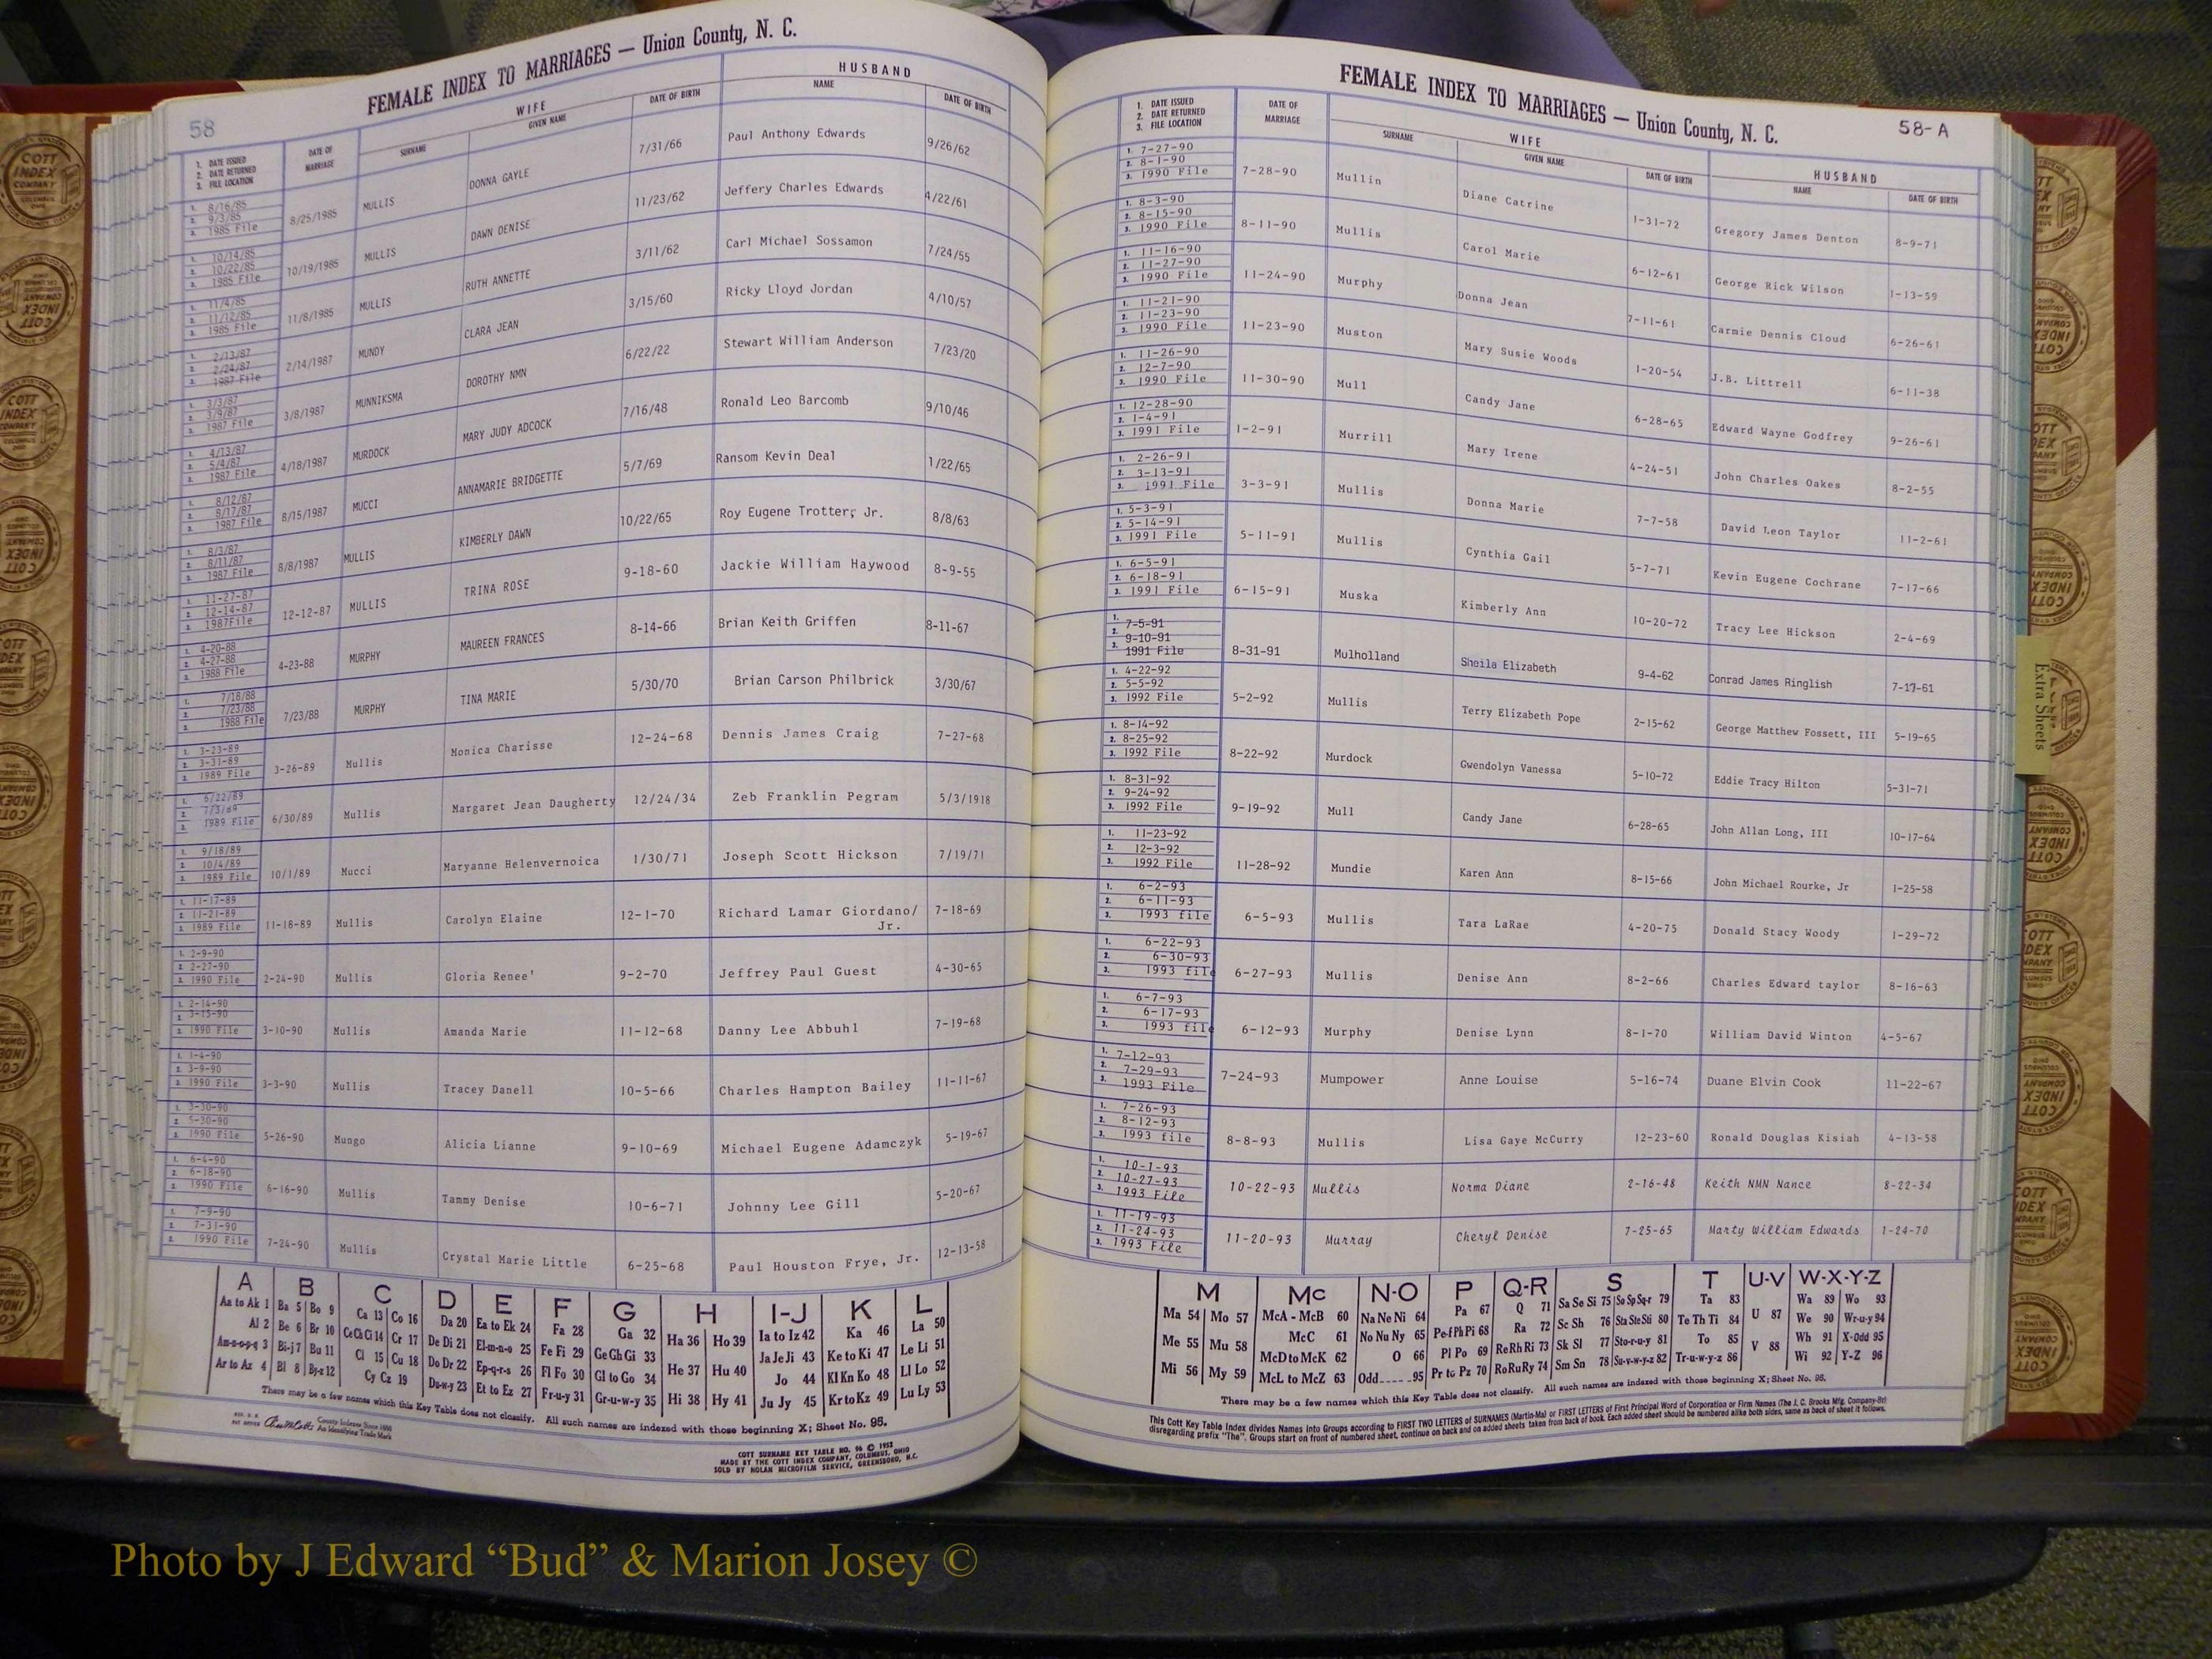 58
FEMALE INDEX TO MARRIAGES — Union County, N. C.
1. DATE ISSUED 2. DATE RETURNED 3. FILE LOCATION
DATE OF MARRIAGE
WIFE
SURNAME GIVEN NAME DATE OF BIRTH
HUSBAND
NAME DATE OF BIRTH
1. 8/16/85 2. 9/3/85 3. 1985 File 8/25/1985 MULLIS DONNA GAYLE 7/31/66 Paul Anthony Edwards 9/26/62
1. 10/14/85 2. 10/22/85 3. 1985 File 10/19/1985 MULLIS DAWN DENISE 11/23/62 Jeffery Charles Edwards 4/22/61
1. 11/4/85 2. 11/12/85 3. 1985 File 11/8/1985 MULLIS RUTH ANNETTE 3/11/62 Carl Michael Sossamon 7/24/55
1. 2/13/87 2. 2/24/87 3. 1987 File 2/14/1987 MUNDY CLARA JEAN 3/15/60 Ricky Lloyd Jordan 4/10/57
1. 3/3/87 2. 3/9/87 3. 1987 File 3/8/1987 MUNNIKSMA DOROTHY NMN 6/22/22 Stewart William Anderson 7/23/20
1. 4/13/87 2. 5/4/87 3. 1987 File 4/18/1987 MURDOCK MARY JUDY ADCOCK 7/16/48 Ronald Leo Barcomb 9/10/46
1. 8/12/87 2. 8/17/87 3. 1987 File 8/15/1987 MUCCI ANNAMARIE BRIDGETTE 5/7/69 Ransom Kevin Deal 1/22/65
1. 8/3/87 2. 8/11/87 3. 1987 File 8/8/1987 MULLIS KIMBERLY DAWN 10/22/65 Roy Eugene Trotter, Jr. 8/8/63
1. 11-27-87 2. 12-14-87 3. 1987File 12-12-87 MULLIS TRINA ROSE 9-18-60 Jackie William Haywood 8-9-55
1. 4-20-88 2. 4-27-88 3. 1988 File 4-23-88 MURPHY MAUREEN FRANCES 8-14-66 Brian Keith Griffen 8-11-67
1. 7/18/88 2. 7/23/88 3. 1988 File 7/23/88 MURPHY TINA MARIE 5/30/70 Brian Carson Philbrick 3/30/67
1. 3-23-89 2. 3-31-89 3. 1989 File 3-26-89 Mullis Monica Charisse 12-24-68 Dennis James Craig 7-27-68
1. 6/22/89 2. 7/3/89 3. 1989 File 6/30/89 Mullis Margaret Jean Daugherty 12/24/34 Zeb Franklin Pegram 5/3/1918
1. 9/18/89 2. 10/4/89 3. 1989 File 10/1/89 Mucci Maryanne Helenvernoica 1/30/71 Joseph Scott Hickson 7/19/71
1. 11-17-89 2. 11-21-89 3. 1989 File 11-18-89 Mullis Carolyn Elaine 12-1-70 Richard Lamar Giordano/ Jr. 7-18-69
1. 2-9-90 2. 2-27-90 3. 1990 File 2-24-90 Mullis Gloria Renee' 9-2-70 Jeffrey Paul Guest 4-30-65
1. 2-14-90 2. 3-15-90 3. 1990 File 3-10-90 Mullis Amanda Marie 11-12-68 Danny Lee Abbuhl 7-19-68
1. 1-4-90 2. 3-9-90 3. 1990 File 3-3-90 Mullis Tracey Danell 10-5-66 Charles Hampton Bailey 11-11-67
1. 3-30-90 2. 5-30-90 3. 1990 File 5-26-90 Mungo Alicia Lianne 9-10-69 Michael Eugene Adamczyk 5-19-67
1. 6-4-90 2. 6-18-90 3. 1990 File 6-16-90 Mullis Tammy Denise 10-6-71 Johnny Lee Gill 5-20-67
1. 7-9-90 2. 7-31-90 3. 1990 File 7-24-90 Mullis Crystal Marie Little 6-25-68 Paul Houston Frye, Jr. 12-13-58
A B C D E F G H I-J K L
Aa to Ak 1 Ba 5 Bo 9 Ca 13 Co 16 Da 20 Ea to Ek 24 Fa 28 Ga 32 Ha 36 Ho 39 Ia to Iz 42 Ka 46 La 50
Al 2 Be 6 Br 10 Ce Ch Ci 14 Cr 17 De Di 21 El-m-n-o 25 Fe Fi 29 Ge Gh Gi 33 Ja Je Ji 43 Ke to Ki 47 Le Li 51
Am-n-o-p-q 3 Bi-j 7 Bu 11 Cl 15 Cu 18 Do Dr 22 Ep-q-r-s 26 Fl Fo 30 Gl to Go 34 He 37 Hu 40 Jo 44 Kl Kn Ko 48 Ll Lo 52
Ar to Az 4 Bl 8 By-z 12 Cy Cz 19 Du-w-y 23 Et to Ez 27 Fr-u-y 31 Gr-u-w-y 35 Hi 38 Hy 41 Ju Jy 45 Kr to Kz 49 Lu Ly 53
There may be a few names which this Key Table does not classify. All such names are indexed with those beginning X; Sheet No. 95.
County Indexes Since 1888
An Identifying Trade Mark
COTT SURNAME KEY TABLE NO. 96 © 1952
MADE BY THE COTT INDEX COMPANY, COLUMBUS, OHIO
SOLD BY NOLAN MICROFILM SERVICE, GREENSBORO, N.C.
FEMALE INDEX TO MARRIAGES — Union County, N. C.
58-A
1. DATE ISSUED 2. DATE RETURNED 3. FILE LOCATION
DATE OF MARRIAGE
WIFE
SURNAME GIVEN NAME DATE OF BIRTH
HUSBAND
NAME DATE OF BIRTH
1. 7-27-90 2. 8-1-90 3. 1990 File 7-28-90 Mullin Diane Catrine 1-31-72 Gregory James Denton 8-9-71
1. 8-3-90 2. 8-15-90 3. 1990 File 8-11-90 Mullis Carol Marie 6-12-61 George Rick Wilson 1-13-59
1. 11-16-90 2. 11-27-90 3. 1990 File 11-24-90 Murphy Donna Jean 7-11-61 Carmie Dennis Cloud 6-26-61
1. 11-21-90 2. 11-23-90 3. 1990 File 11-23-90 Muston Mary Susie Woods 1-20-54 J.B. Littrell 6-11-38
1. 11-26-90 2. 12-7-90 3. 1990 File 11-30-90 Mull Candy Jane 6-28-65 Edward Wayne Godfrey 9-26-61
1. 12-28-90 2. 1-4-91 3. 1991 File 1-2-91 Murrill Mary Irene 4-24-51 John Charles Oakes 8-2-55
1. 2-26-91 2. 3-13-91 3. 1991 File 3-3-91 Mullis Donna Marie 7-7-58 David Leon Taylor 11-2-61
1. 5-3-91 2. 5-14-91 3. 1991 File 5-11-91 Mullis Cynthia Gail 5-7-71 Kevin Eugene Cochrane 7-17-66
1. 6-5-91 2. 6-18-91 3. 1991 File 6-15-91 Muska Kimberly Ann 10-20-72 Tracy Lee Hickson 2-4-69
1. 7-5-91 2. 9-10-91 3. 1991 File 8-31-91 Mulholland Sheila Elizabeth 9-4-62 Conrad James Ringlish 7-17-61
1. 4-22-92 2. 5-5-92 3. 1992 File 5-2-92 Mullis Terry Elizabeth Pope 2-15-62 George Matthew Fossett, III 5-19-65
1. 8-14-92 2. 8-25-92 3. 1992 File 8-22-92 Murdock Gwendolyn Vanessa 5-10-72 Eddie Tracy Hilton 5-31-71
1. 8-31-92 2. 9-24-92 3. 1992 File 9-19-92 Mull Candy Jane 6-28-65 John Allan Long, III 10-17-64
1. 11-23-92 2. 12-3-92 3. 1992 File 11-28-92 Mundie Karen Ann 8-15-66 John Michael Rourke, Jr 1-25-58
1. 6-2-93 2. 6-11-93 3. 1993 file 6-5-93 Mullis Tara LaRae 4-20-75 Donald Stacy Woody 1-29-72
1. 6-22-93 2. 6-30-93 3. 1993 file 6-27-93 Mullis Denise Ann 8-2-66 Charles Edward taylor 8-16-63
1. 6-7-93 2. 6-17-93 3. 1993 file 6-12-93 Murphy Denise Lynn 8-1-70 William David Winton 4-5-67
1. 7-12-93 2. 7-29-93 3. 1993 File 7-24-93 Mumpower Anne Louise 5-16-74 Duane Elvin Cook 11-22-67
1. 7-26-93 2. 8-12-93 3. 1993 file 8-8-93 Mullis Lisa Gaye McCurry 12-23-60 Ronald Douglas Kisiah 4-13-58
1. 10-1-93 2. 10-27-93 3. 1993 File 10-22-93 Mullis Norma Diane 2-16-48 Keith NMN Nance 8-22-34
1. 11-19-93 2. 11-24-93 3. 1993 File 11-20-93 Murray Cheryl Denise 7-25-65 Marty William Edwards 1-24-70
M Mc N-O P Q-R S T U-V W-X-Y-Z
Ma 54 Mo 57 McA - McB 60 Na Ne Ni 64 Pa 67 Q 71 Sa Se Si 75 So Sp Sq-r 79 Ta 83 U 87 Wa 89 Wo 93
Me 55 Mu 58 McC 61 No Nu Ny 65 Pe-f Ph Pi 68 Ra 72 Sc Sh 76 Sta Ste Sti 80 Te Th Ti 84 We 90 Wr-u-y 94
McD to McK 62 O 66 Pl Po 69 Re Rh Ri 73 Sk Sl 77 Sto-r-u-y 81 To 85 V 88 Wh 91 X-Odd 95
Mi 56 My 59 McL to McZ 63 Odd-----95 Pr to Pz 70 Ro Ru Ry 74 Sm Sn 78 Su-v-w-y-z 82 Tr-u-w-y-z 86 Wi 92 Y-Z 96
There may be a few names which this Key Table does not classify. All such names are indexed with those beginning X; Sheet No. 95.
This Cott Key Table Index divides Names into Groups according to FIRST TWO LETTERS of SURNAMES (Martin-Ma) or FIRST LETTERS of First Principal Word of Corporation or Firm Names (The J. C. Brooks Mfg. Company-Br)
disregarding prefix "The". Groups start on front of numbered sheet, continue on back and on added sheets taken from back of book. Each added sheet should be numbered alike both sides, same as back of sheet it follows.
Extra Sheets
COTT INDEX COMPANY
Photo by J Edward “Bud” & Marion Josey ©